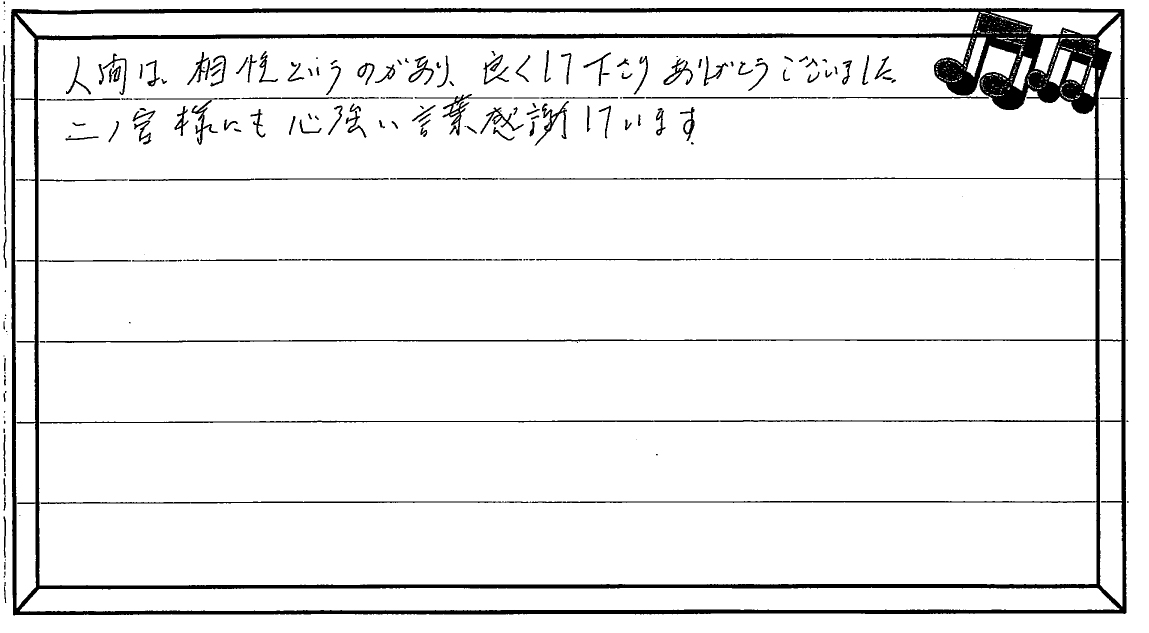 人間は、相性というのがあり、良くして下さりありがとうございました
二ノ宮様にも心強い言葉感謝しています